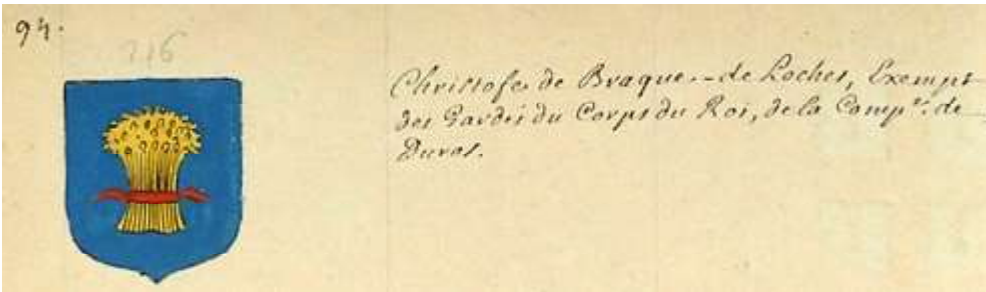 94.
216
Christofe de Braque - de Loches, Exempt
des Gardes du Corps du Roi, de la Comp.ie de
Duras.